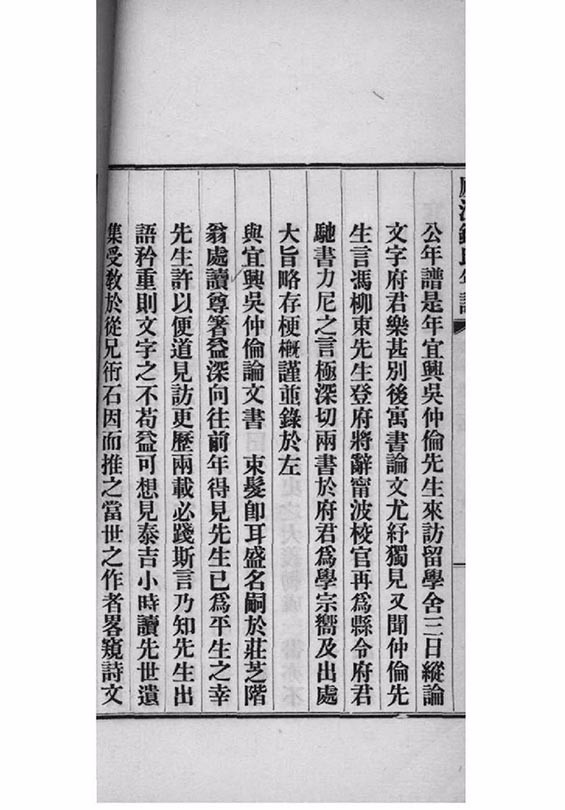 公年譜是年宜興吳仲倫先生來訪留學舍三日縱論
文字府君樂甚別後寓書論文尤紓獨見又聞仲倫先
生言馮柳東先生登府將辭甯波校官再爲縣令府君
馳書力尼之言極深切兩書於府君爲學宗嚮及出處
大旨略存梗槪謹並錄於左
與宜興吳仲倫論文書　束髮卽耳盛名嗣於莊芝階
翁處讀尊箸益深向往前年得見先生已爲平生之幸
先生許以便道見訪更歷兩載必踐斯言乃知先生出
語矜重則文字之不苟益可想見泰吉小時讀先世遺
集受敎於從兄衎石因而推之當世之作者畧窺詩文